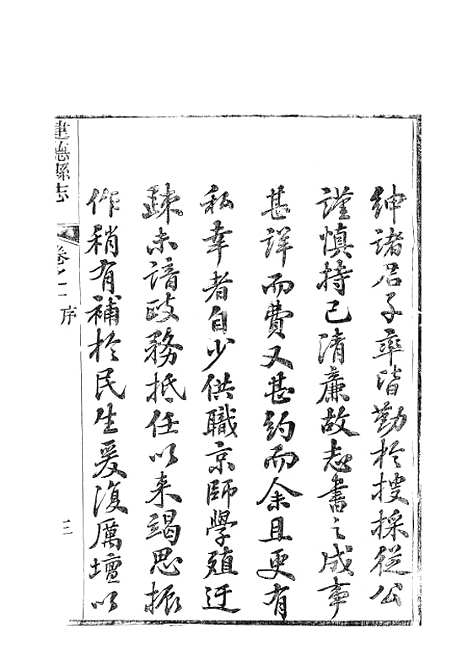 紳諸君子率皆勤於搜採從公
謹慎持己清廉故志書之成事
甚詳而費又甚約而余且更有
私幸者自少供職京師學殖迂
疎未諳政務抵任以來竭思振
作稍有補於民生爰復厲壇以
建德縣志
卷之一 序
三